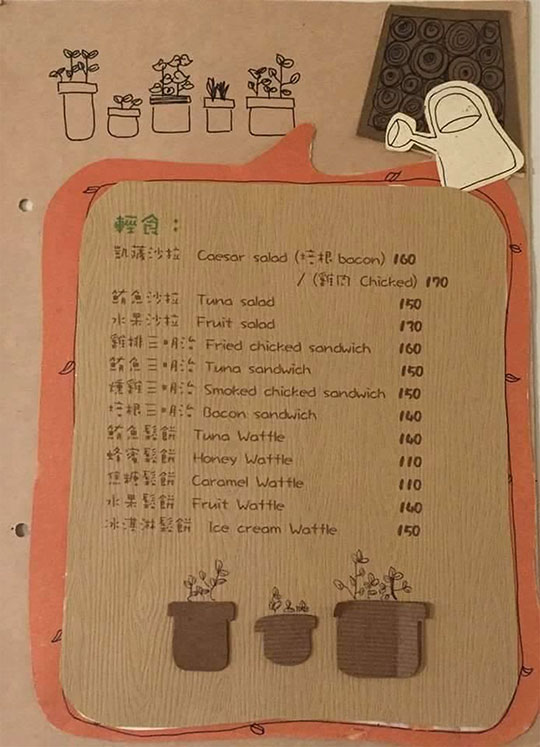 輕食：
凱薩沙拉 Caesar salad (培根 bacon) 160
/ (雞肉 Chicked) 170
鮪魚沙拉 Tuna salad 150
水果沙拉 Fruit salad 170
雞排三明治 Fried chicked sandwich 160
鮪魚三明治 Tuna sandwich 150
燻雞三明治 Smoked chicked sandwich 150
培根三明治 Bacon sandwich 140
鮪魚鬆餅 Tuna Wattle 140
蜂蜜鬆餅 Honey Wattle 110
焦糖鬆餅 Caramel Wattle 110
水果鬆餅 Fruit Wattle 140
冰淇淋鬆餅 Ice cream Wattle 150